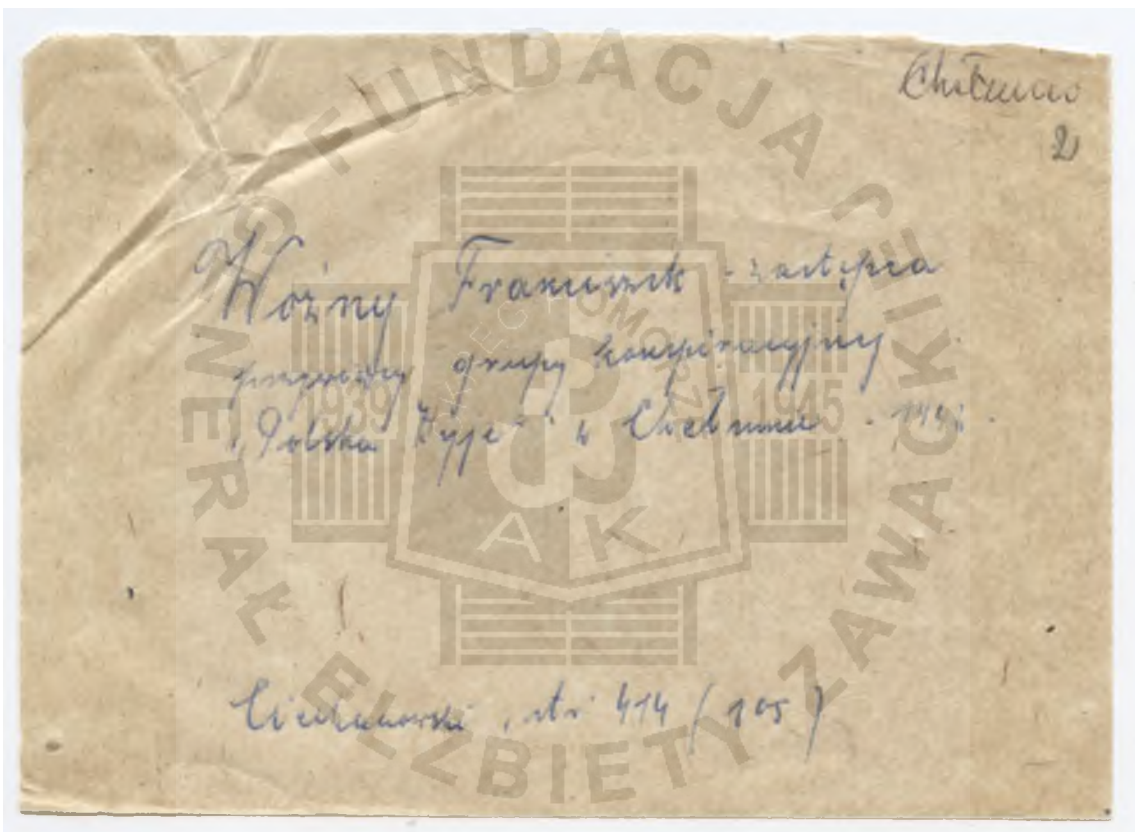 Chełmno
2)
Woźny Franciszek - zastępca
grupy konspiracyjnej
"Polska Żyje" w Chełmnie
Ciechanowski, str 414 (105)
FUNDACJA GENERAŁ ELŻBIETY ZAWACKIEJ
1939 1945
AK